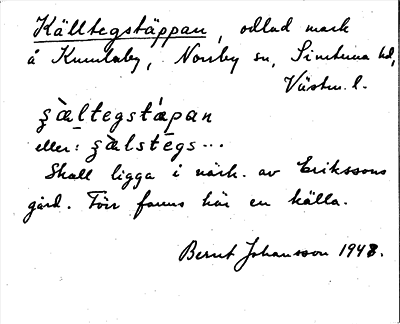 Källtegstäppan, odlad mark
å Kumlaby, Norrby sn, Simtuna hd,
Västm. l.
ʂὰḷtegstápan
eller: ʂὰlstēgs...
Skall ligga i närh. av Erikssons
gård. Förr fanns här en källa.
Bernt Johansson 1943.